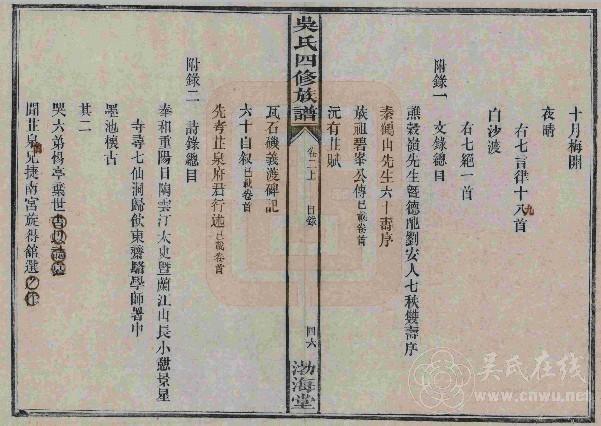 十月梅開
夜晴
右七言律十八首
九
白沙渡
右七絕一首
附錄一 文錄總目
熊穀嶺先生暨德配劉安人七秩雙壽序
秦鶴山先生六十壽序
族祖碧峯公傳已載卷首
沅有芷賦
吳氏四修族譜 卷二上 目錄 四六 渤海堂
瓦石磯義渡碑記
六十自敘已載卷首
先考芷泉府君行述已載卷首
附錄二 詩錄總目
奉和重陽日陶雲汀太史暨蘭江山長小憩景星
寺尋七仙洞歸飲東齋騶學師署中
墨池懷古
其二
哭六弟楊亭棄世
聞芷泉兄捷南宮旋得館選之作
吴氏在线
www.cnwu.net